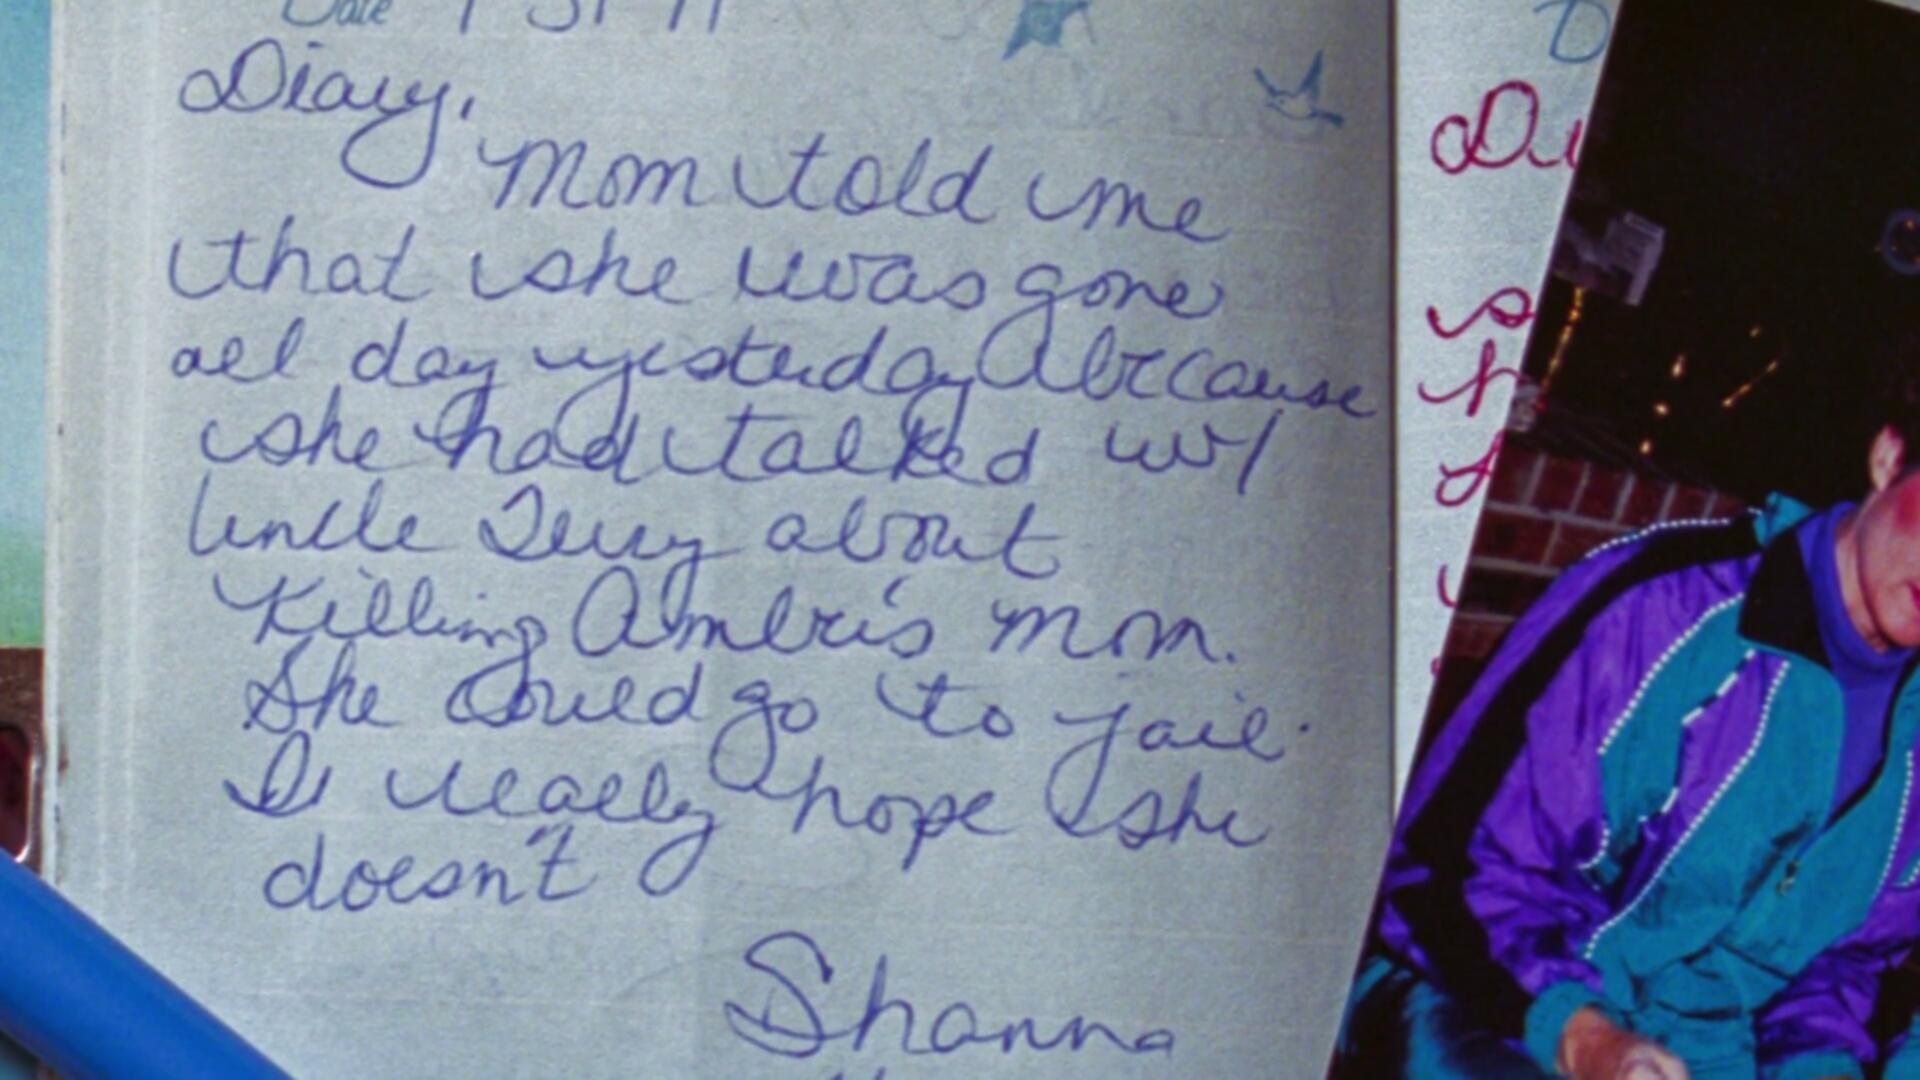 Date 1 31 91
Diary,
Mom told me
that she was gone
all day yesterday because
she had talked w/
Uncle Terry about
Killing Amber's mom.
She could go to jail.
I really hope she
doesn't
Shanna
D